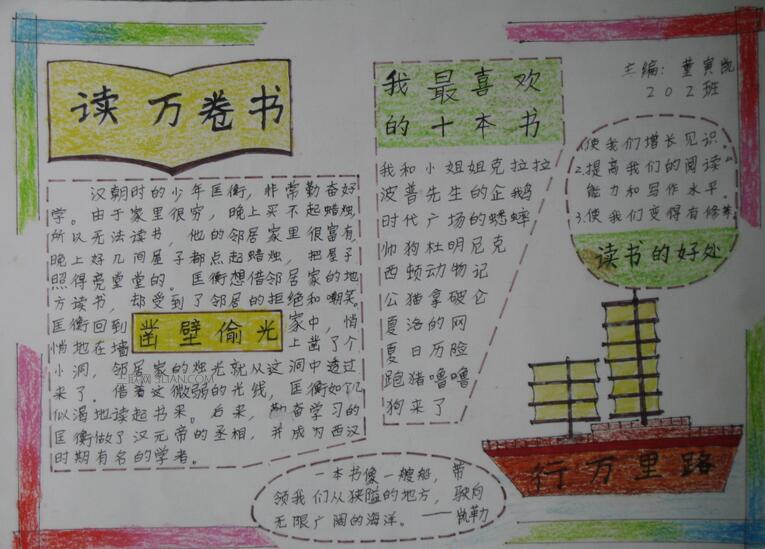 读万卷书
汉朝时的少年匡衡，非常勤奋好
学。由于家里很穷，晚上买不起蜡烛，
所以无法读书，他的邻居家里很富有，
晚上好几间屋子都点起蜡烛，把屋子
照得亮堂堂的。匡衡想借邻居家的地
方读书，却受到了邻居的拒绝和嘲笑。
匡衡回到
凿壁偷光
家中，悄
悄地在墙
上凿了个
小洞，邻居家的烛光就从这洞中透过
来了。借着这微弱的光线，匡衡如饥
似渴地读起书来。后来，勤奋学习的
匡衡做了汉元帝的丞相，并成为西汉
时期有名的学者。
我最喜欢
的十本书
我和小姐姐克拉拉
波普先生的企鹅
时代广场的蟋蟀
帅狗杜明尼克
西顿动物记
公猫拿破仑
夏洛的网
夏日历险
跑猪噜噜
狗来了
主编：董寅凯
202班
1.使我们增长见识。
2.提高我们的阅读
能力和写作水平。
3.使我们变得有修养
读书的好处
行万里路
一本书像一艘船，带
领我们从狭隘的地方，驶向
无限广阔的海洋。——凯勒